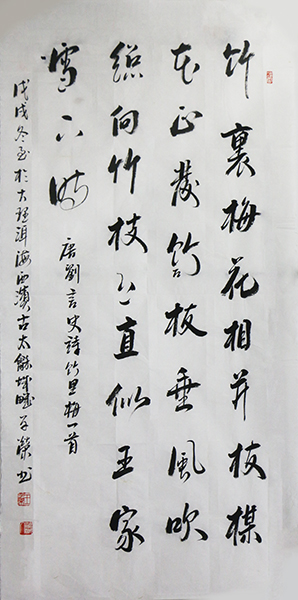 竹裏梅花相并枝楳
花正發竹枝垂風吹
總向竹枝上直似王家
雪下時
唐劉言史詩竹里梅一首
戊戌冬至於大理洱海西濱古太龢城畔榮书